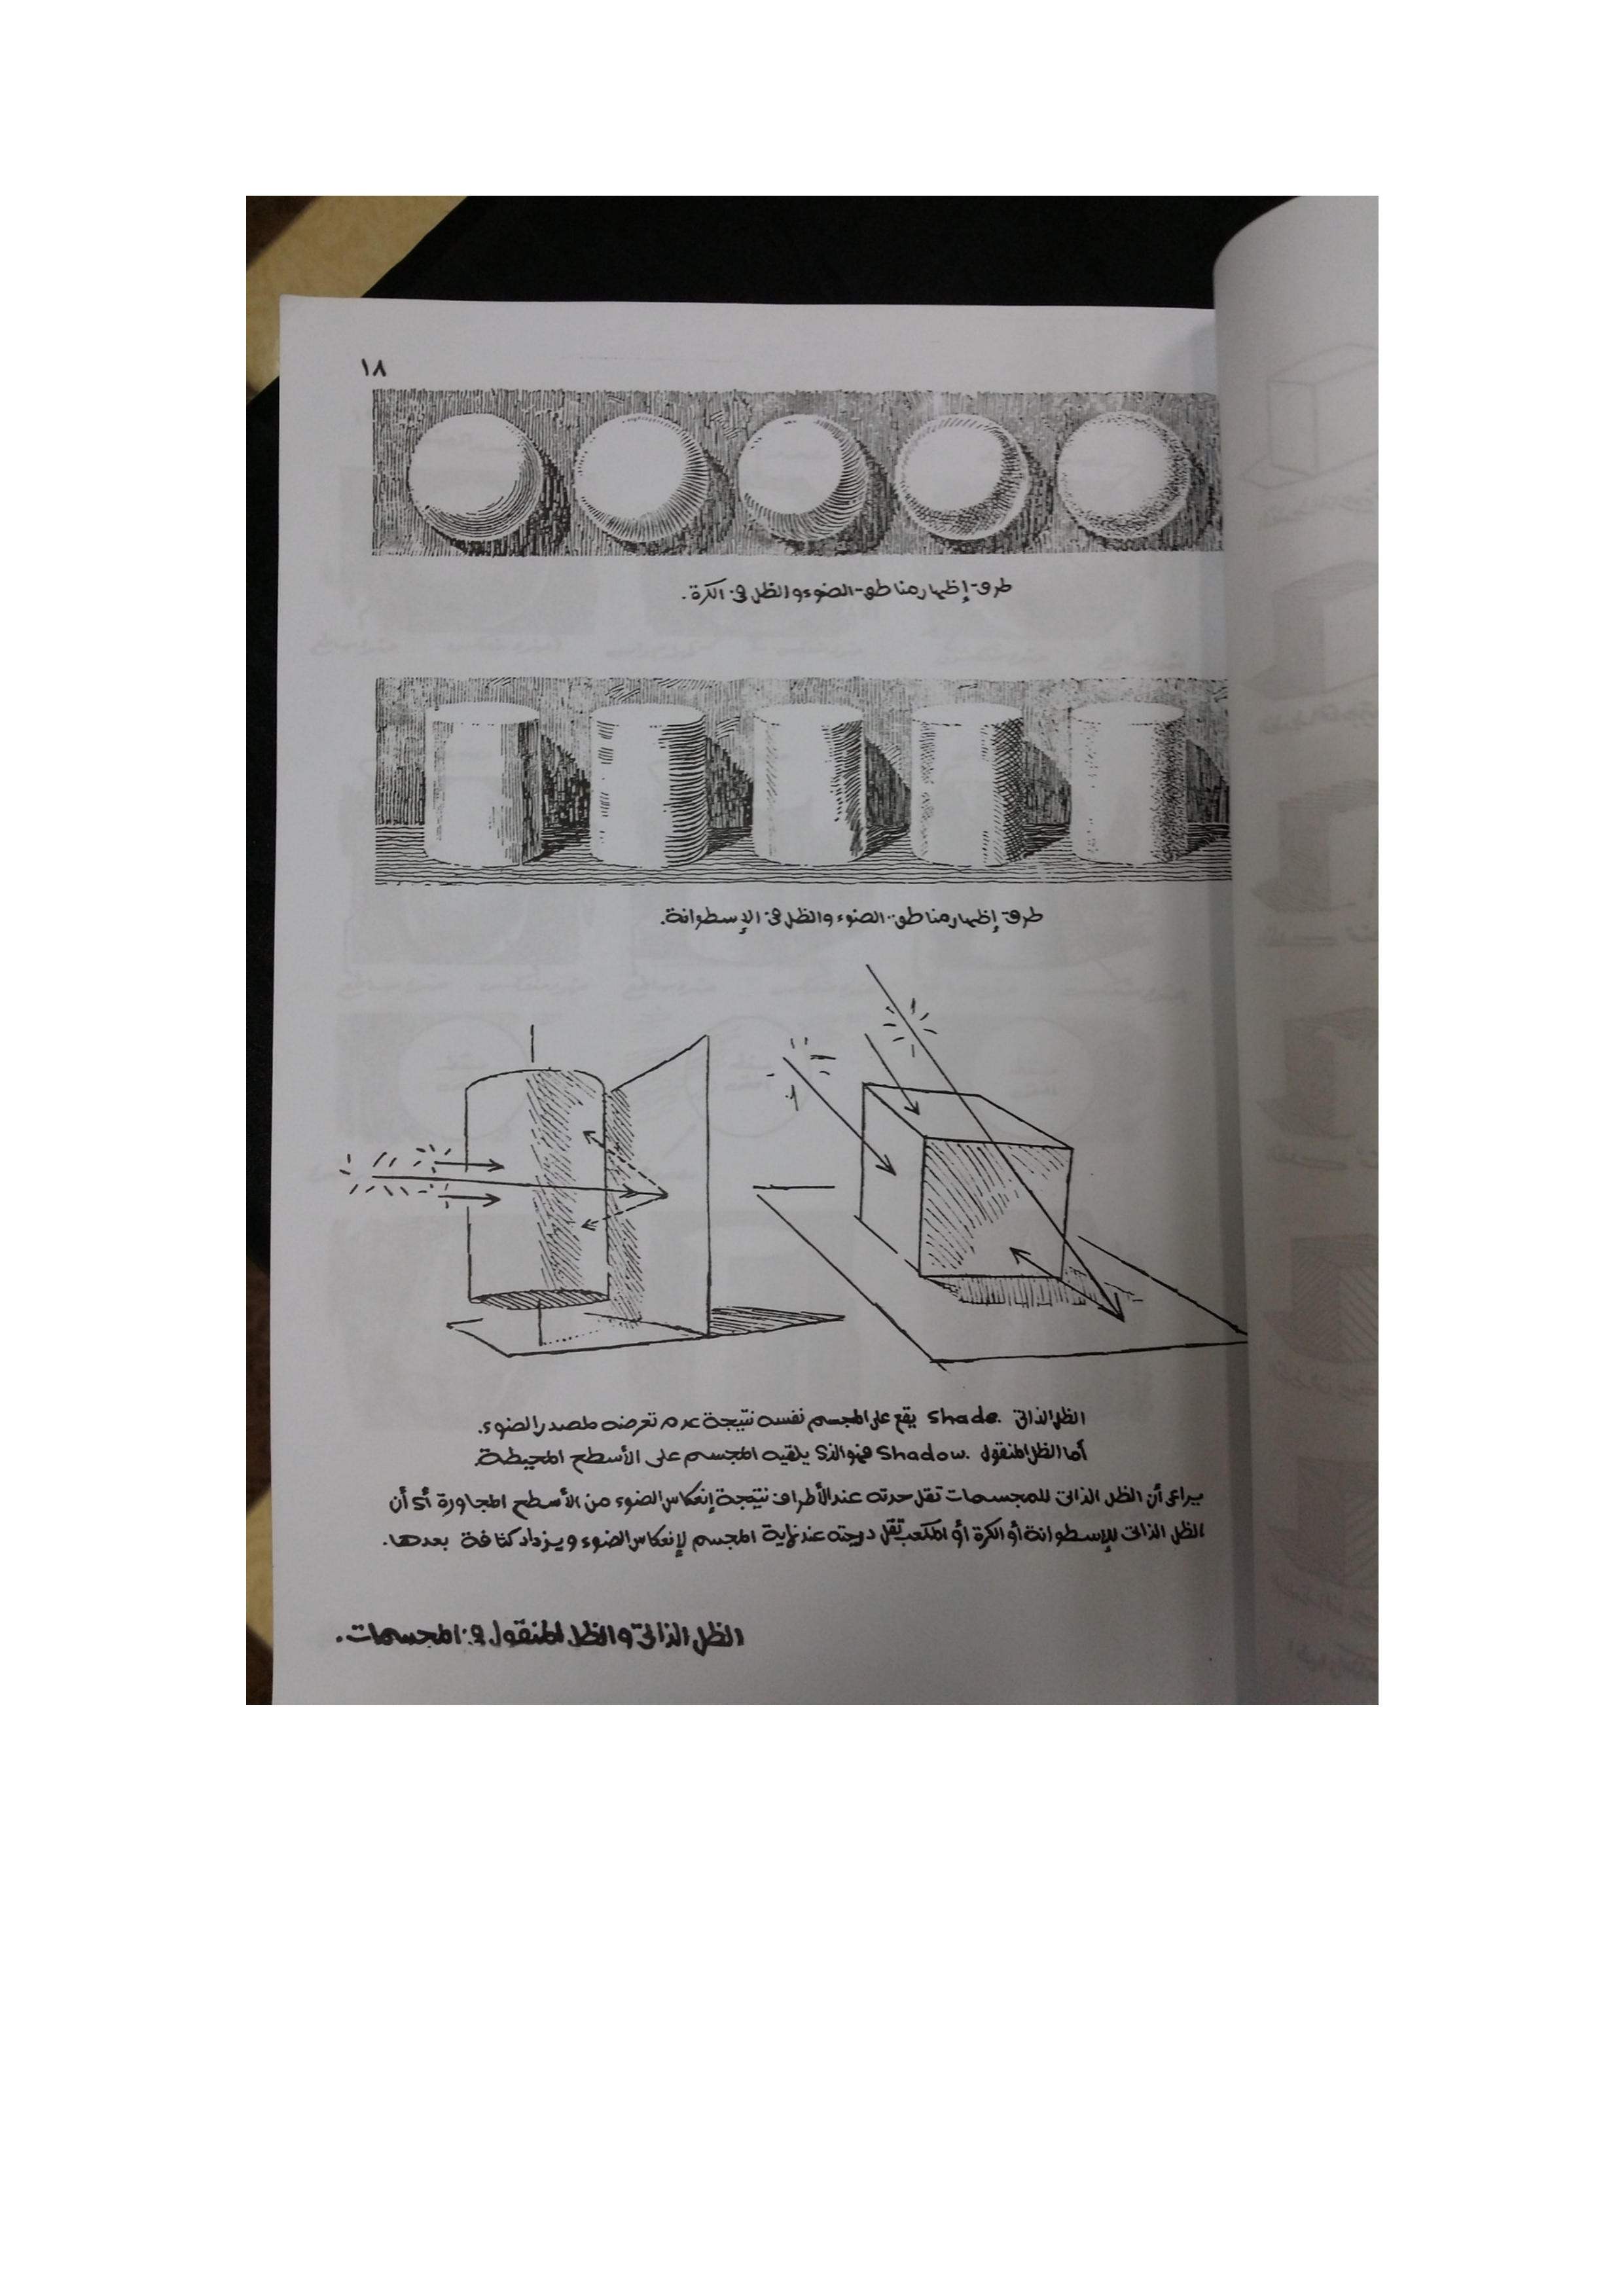 ١٨
طرق إظهار مناطق الضوء والظل في الكرة.
طرق إظهار مناطق الضوء والظل في الإسطوانة.
الظل الذاتى Shade. يقع على المجسم نفسه نتيجة عدم تعرضه لمصدر الضوء.
أما الظل المنقول Shadow. فهو الذى يلقيه المجسم على الأسطح المحيطة.
يراعى أن الظل الذاتى للمجسمات تقل حدته عند الأطراف نتيجة إنعكاس الضوء من الأسطح المجاورة أى أن
الظل الذاتى للإسطوانة أو الكرة أو المكعب تقل درجته عند نهاية المجسم لإنعكاس الضوء ويزداد كثافة بعدها.
الظل الذاتى والظل المنقول في المجسمات.